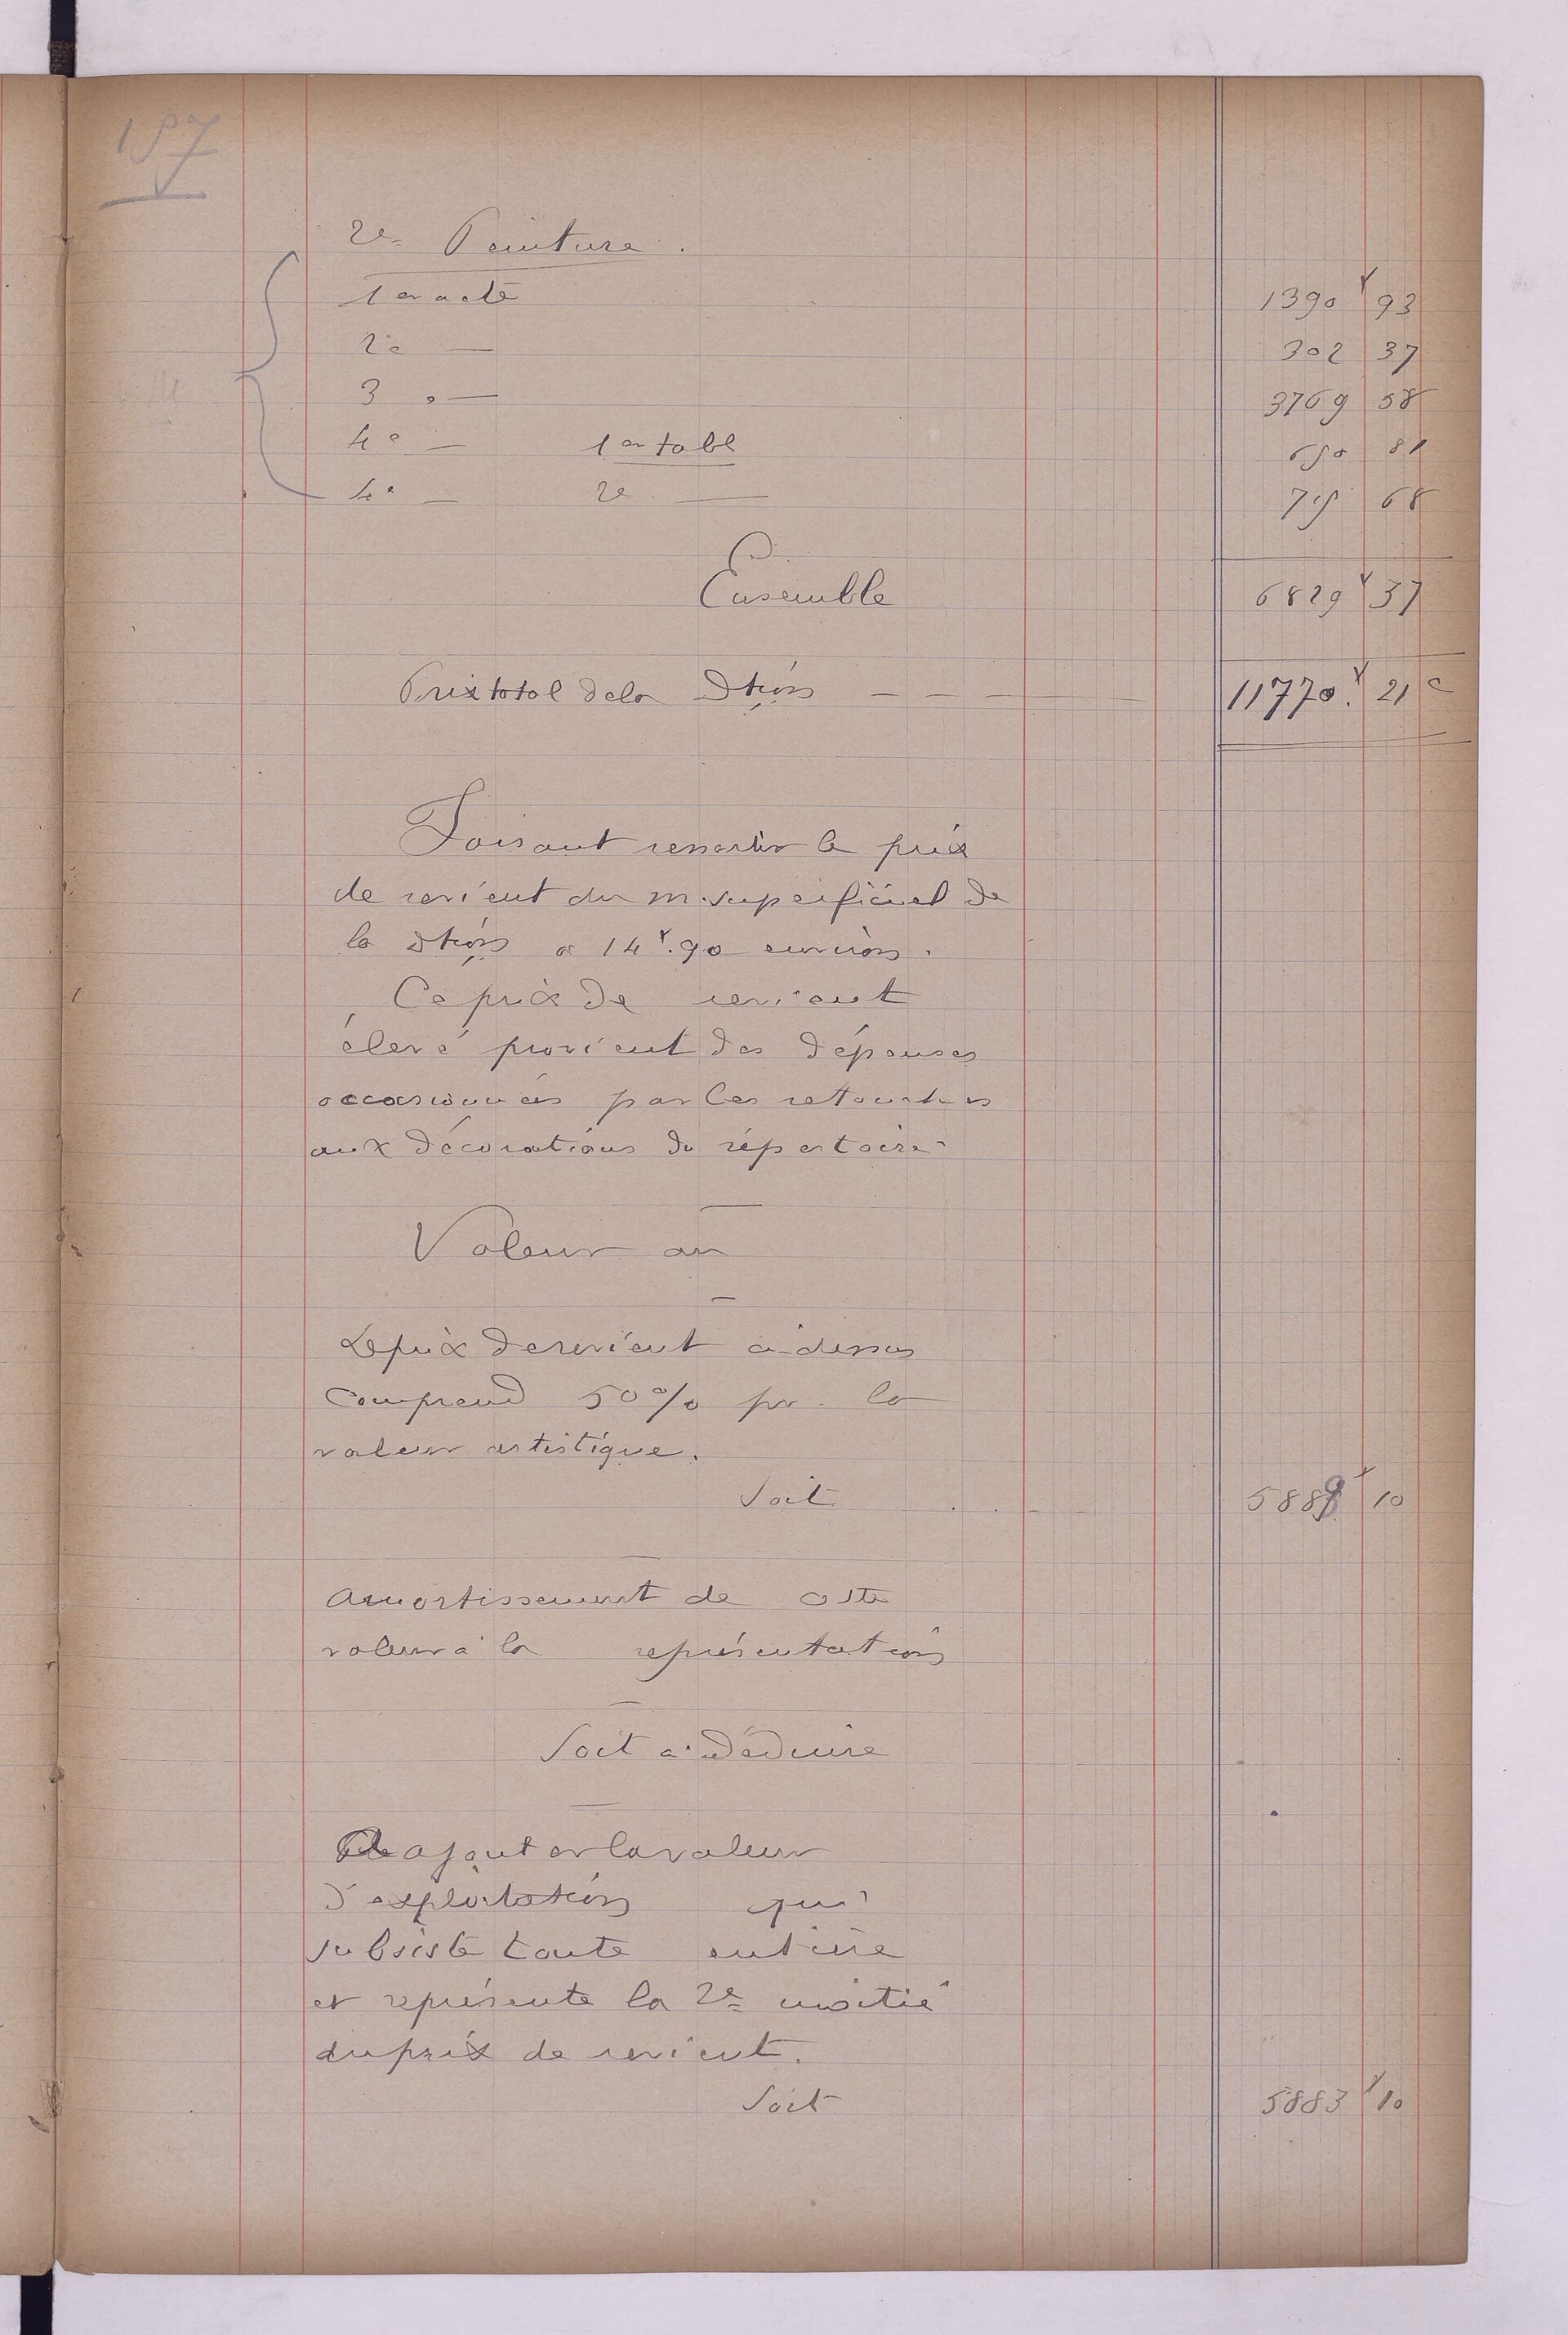 157
2e Peinture.
1er acte 1390 f 93
2e — 302 37
3e — 3769 58
4e — 1er tabl 650 81
4e — 2e — 715 68
Ensemble 6829 f 37
Prix total de la Dtion — — — 11770 f. 21 c
Faisant ressortir le prix
de revient du m. superficiel de
la dtion à 14 f. 90 environ.
Ce prix de revient
élevé provient des dépenses
occasionnées par les retouches
aux décorations du répertoire
Valeur au
Le prix de revient ci-dessus
comprend 50 % pr. la
valeur artistique.
Soit 5889 f 10
Amortissement de cette
valeur à la représentation
Soit à déduire
A ajouter la valeur
d'exploitation qui
subsiste toute entière
et représente la 2e moitié
du prix de revient.
Soit 5883 f 10